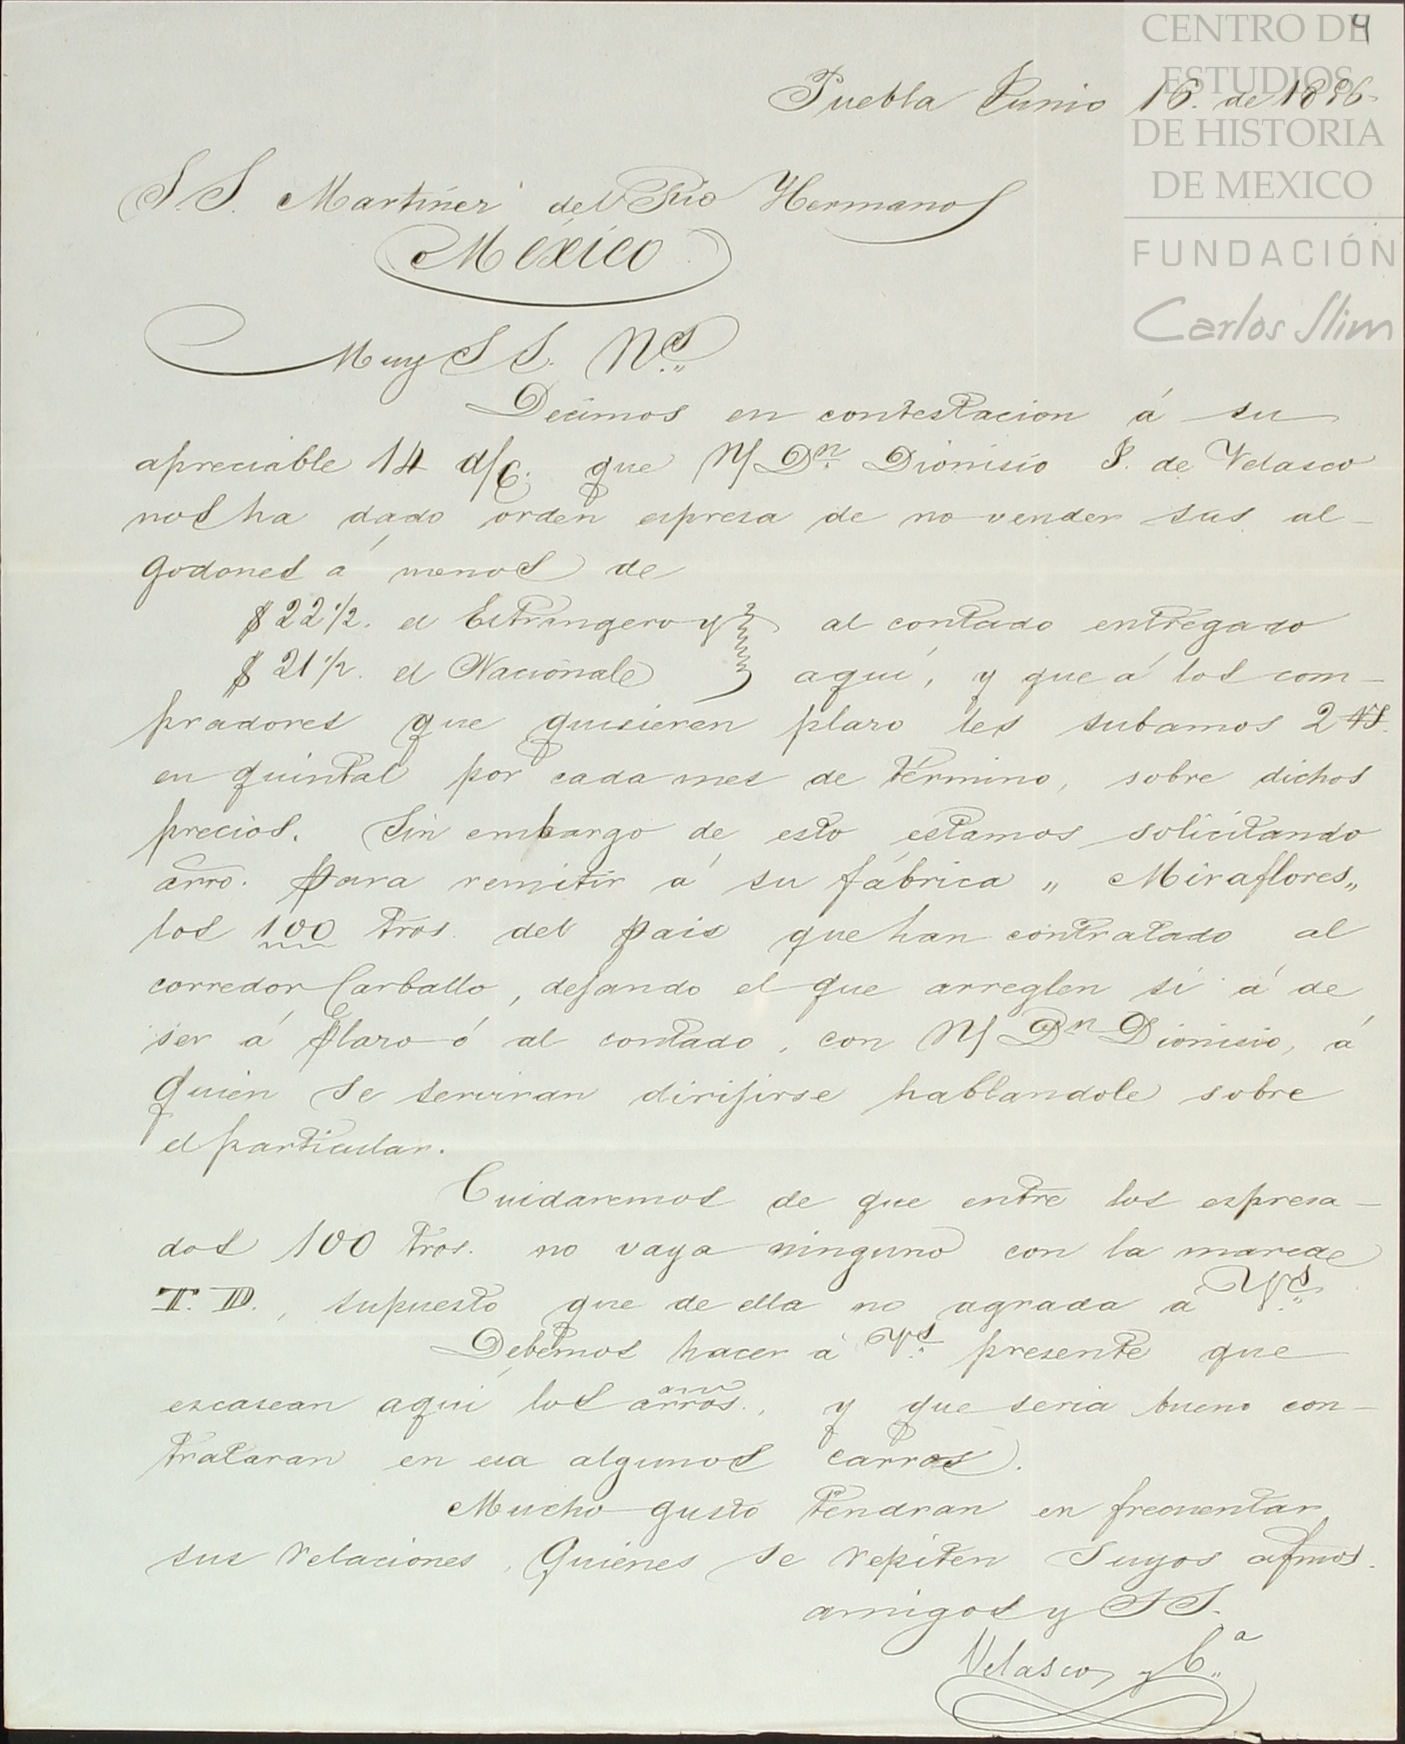 4
CENTRO DE
ESTUDIOS
DE HISTORIA
DE MEXICO
FUNDACIÓN
Carlos Slim
Puebla Junio 16. de 1896
S.S. Martinez del Rio Hermanos
México
Muy S S. Nrs.
Decimos en contestacion á su
apreciable 14 d/c. que N/ Dn. Dionisio J. de Velasco
nos ha dado orden espresa de no vender sus al-
godones á menos de
$ 22 1/2. el Estrangero y al contado entregado
$ 21 1/2. el Nacional aquí, y que á los com-
pradores que quisieren plazo les subamos 2 rs.
en quintal por cada mes de término, sobre dichos
precios. Sin embargo de esto estamos solicitando
arro. para remitir á su fábrica „ Miraflores„
los 100 tros. del pais que han contratado al
corredor Carballo, dejando el que arreglen si á de
ser á plazo ó al contado, con N/ Dn Dionisio, á
quien se serviran dirijirse hablandole sobre
el particular.
Cuidaremos de que entre los espresa-
dos 100 tros. no vaya ninguno con la marca
T. D., supuesto que de ella no agrada á Vs.
Debemos hacer á Vs. presente que
escasean aquí los arros., y que seria bueno con-
trataran en esa algunos carros.
Mucho gusto tendran en frecuentar
sus relaciones, quienes se repiten suyos afmos.
amigos y SS.
Velasco y Ca.